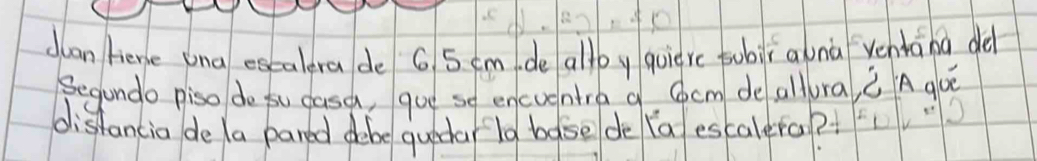 Juan tiene una escalera de 6,5 cm de alto y quiere subir a una ventana del
segundo piso de su casa, que se encuentra a 6cm de altura, ¿A que
distancia de la pared debe quedar la base de la escalera?